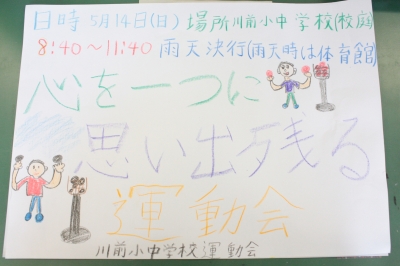 日時 5月14日(日) 場所川前小中学校(校庭)
8:40〜11:40 雨天決行(雨天時は体育館)
心を一つに
思い出残る
運動会
川前小中学校運動会